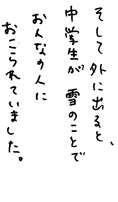 そして外に出ると、
中学生が雪のことで
おんなの人に
おこられていました。